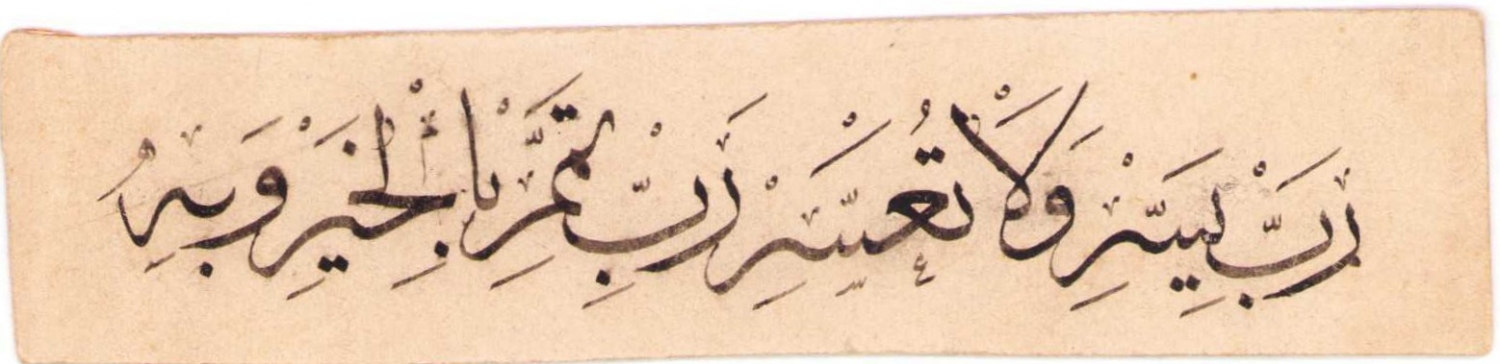 رَبِّ يَسِّرْ وَلَا تُعَسِّرْ رَبِّ تَمِّمْ بِالْخَيْرِ وَبِهِ